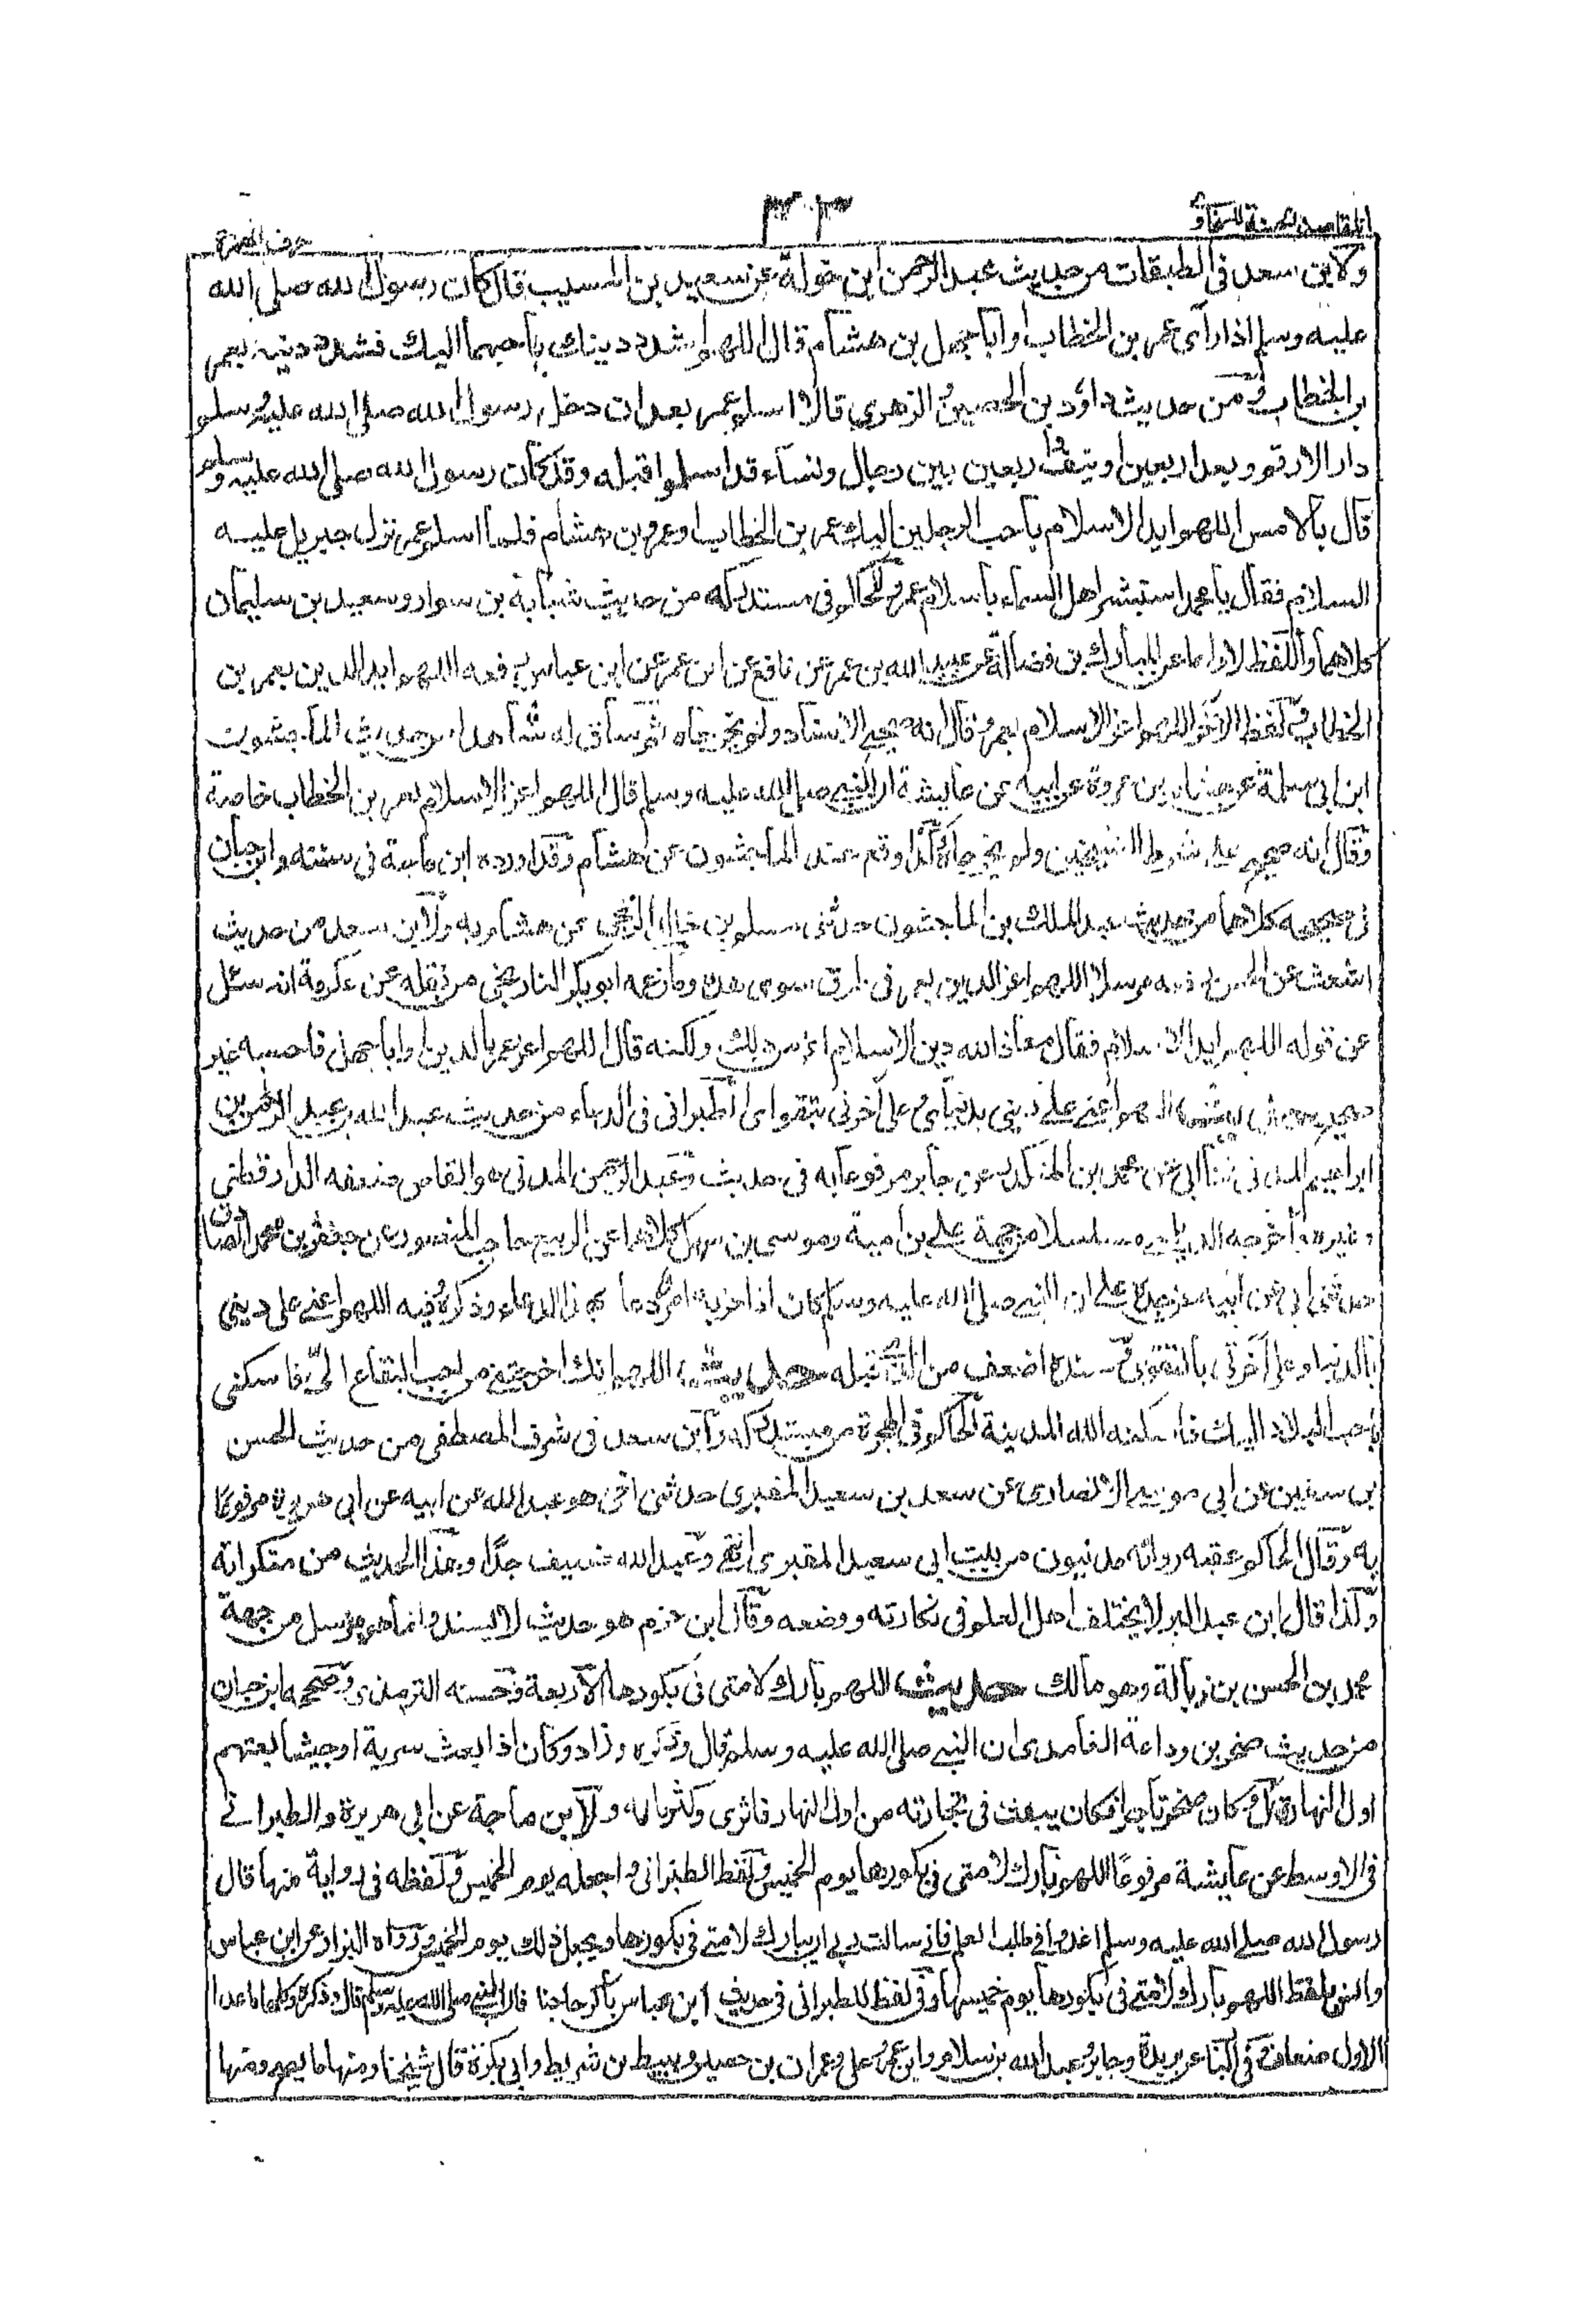 المقاصد الحسنة للسخاوى
٣٠٣
حرف الهمزة
ولابن سعد فى الطبقات من حديث عبد الرحمن ابن حرملة عن سعيد بن المسيب قال كان رسول الله صلى الله
عليه وسلم اذا رآى عمر بن الخطاب او ابا جهل بن هشام قال اللهم اشدد دينك باحبهما اليك فشدد دينه بعمر
بن الخطاب ومن حديث داؤد بن الحصين والزهرى قالا اسلم عمر بعد ان دخل رسول الله صلى الله عليه وسلم
دار الارقم وبعد اربعين او نيف واربعين بين رجال ونساء قد اسلموا قبله وقد كان رسول الله صلى الله عليه وسلم
قال بالامس اللهم ايد الاسلام باحب الرجلين اليك عمر بن الخطاب او عمرو بن هشام فلما اسلم عمر نزل جبريل عليه
السلام فقال يا محمد استبشر اهل السماء باسلام عمر وللحاكم فى مستدركه من حديث شبابة بن سوار وسعيد بن سليمان
كلاهما واللفظ لاولهما عن المبارك بن فضالة عن عبيد الله بن عمر عن نافع عن ابن عمر عن ابن عباس رفعه اللهم ايد الدين بعمر بن
الخطاب وفى لفظ الآخر اللهم اعز الاسلام بعمر وقال انه صحيح الاسناد ولم يخرجاه ثم ساق له شاهدا من حديث الماجشون
ابن ابى سلمة عن هشام بن عروة عن ابيه عن عايشة ان النبى صلى الله عليه وسلم قال اللهم اعز الاسلام بعمر بن الخطاب خاصة
وقال انه صحيح على شرط الشيخين ولم يخرجاه كذا وقع عند الماجشون عن هشام وقد اورده ابن ماجة فى سننه وابن حبان
فى صحيحه كلاهما من حديث عبد الملك بن الماجشون حدثنى مسلم بن خالد الزنجى عن هشام به ولابن سعد من حديث
اشعث عن الحسن رفعه مرسلا اللهم اعز الدين بعمر فى طرق سوى هذه وما زعمه ابو بكر التاريخى من نقله عن عكرمة انه سئل
عن قوله اللهم ايد الاسلام فقال معاذ الله دين الاسلام اعز من ذلك ولكنه قال اللهم اعز عمر بالدين او ابا جهل فاحسبه غير
صحيح حديث اللهم اعنى على دينى بدنياى وعلى آخرتى بتقواى الطبرانى فى الدعاء من حديث عبد الله بن عبد الرحمن بن
ابراهيم المدنى ثنا ابى عن محمد بن المنكدر عن جابر مرفوعا به فى حديث وعبد الرحمن المدنى هو القاص ضعفه الدارقطنى
وغيره واخرجه الديلمى مسلسلا من جهة على بن امية وموسى بن سهل كلاهما عن الربيع حاجب المنصور عن جعفر بن محمد الصادق
حدثنى ابى عن ابيه عن جده على ان النبى صلى الله عليه وسلم كان اذا حزبه امر دعا بهذا الدعاء وذكره وفيه اللهم اعنى على دينى
بالدنيا وعلى آخرتى بالتقوى وسنده اضعف من الذى قبله حديث اللهم انك اخرجتنى من احب البقاع الىّ فاسكنى
باحب البلاد اليك فاسكنه الله المدينة الحاكم فى الهجرة من مستدركه وابن سعد فى شرف المصطفى من حديث الحسن
بن سفين عن ابى موسى الانصارى عن سعد بن سعيد المقبرى حدثنى اخى هو عبد الله عن ابيه عن ابى هريرة مرفوعا
به وقال الحاكم عقبه رواته مدنيون من بيت ابى سعيد المقبرى انتهى وعبد الله ضعيف جدًّا وهذا الحديث من منكراته
ولذا قال ابن عبد البر لا يختلف اهل العلم فى نكارته ووضعه وقال ابن حزم هو حديث لا يسند وانما هو مرسل من جهة
محمد بن الحسن بن زبالة وهو هالك حديث اللهم بارك لامتى فى بكورها الاربعة وحسنه الترمذى وصححه ابن حبان
من حديث صخر بن وداعة الغامدى ان النبى صلى الله عليه وسلم قال وذكره وزاد وكان اذا بعث سرية او جيشا بعثهم
اول النهار قال وكان صخر تاجرا فكان يبعث فى تجارته من اول النهار فاثرى وكثر ماله ولابن ماجة عن ابى هريرة والطبرانى
فى الاوسط عن عايشة مرفوعًا اللهم بارك لامتى فى بكورها يوم الخميس ولفظ الطبرانى واجعله يوم الخميس وفى لفظه فى رواية منها قال
رسول الله صلى الله عليه وسلم اغدوا فى طلب العلم فانى سالت ربى ان يبارك لامتى فى بكورها ويجعل ذلك يوم الخميس ورواه البزار عن ابن عباس
وانس بلفظ اللهم بارك لامتى فى بكورها يوم خميسها وفى لفظ للطبرانى فى حديث ابن عباس باكر حاجتا فان النبى صلى الله عليه وسلم قال وذكره وكلها ما عدا
الاول ضعاف وفى الباب عن بريدة وجابر وعبد الله بن سلام وابن عمر وعلى وعمران بن حصين ونبيط بن شريط وابى بكرة قال شيخنا ومنها ما يصح ومنها